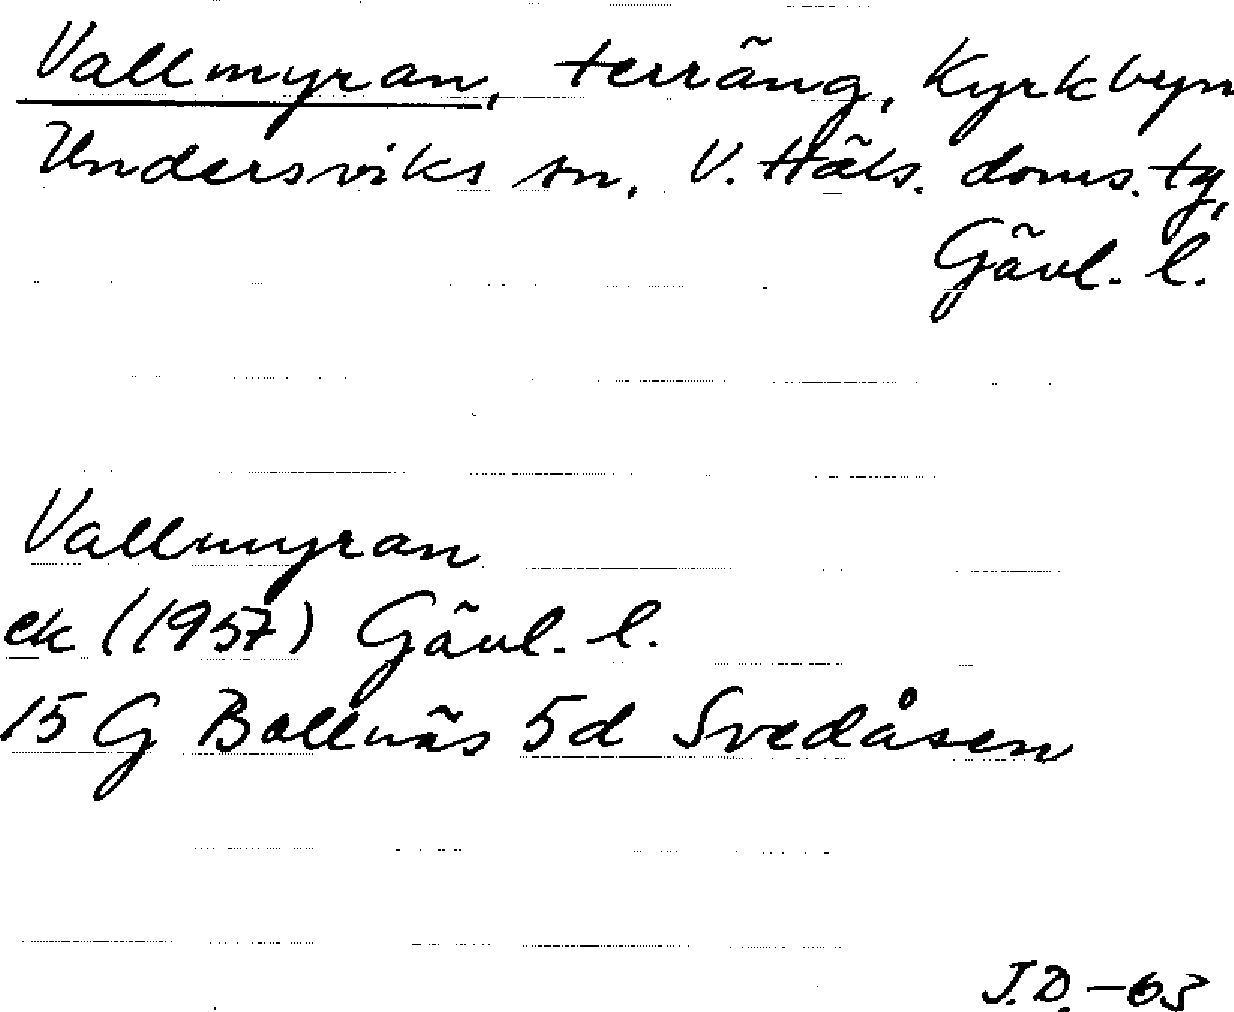 Vallmyran, terräng, Kyrkbyn
Undersviks sn, V. Häls. doms. tg,
Gävl. l.
Vallmyran
ek (1957) Gävl. l.
15 G Bollnäs 5d Svedåsen
J.D. -63